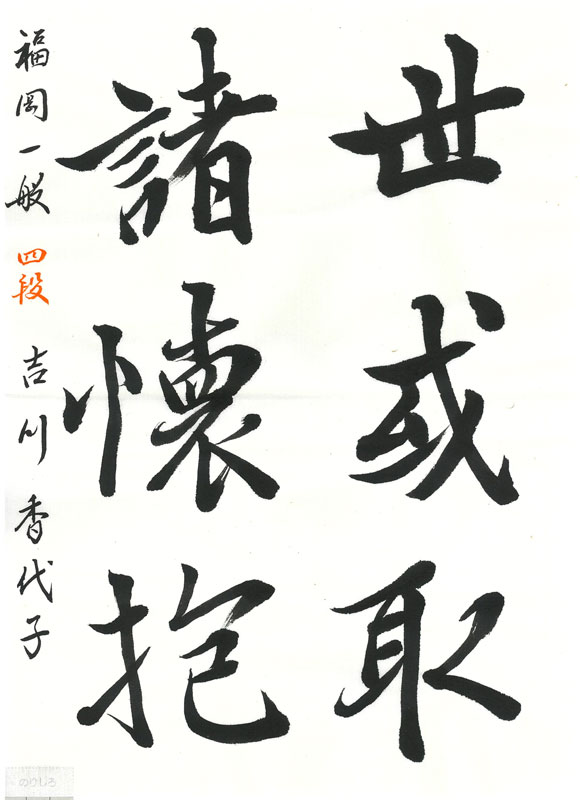 世或取
諸懐抱
福岡一般 四段 吉川 香代子
のりしろ